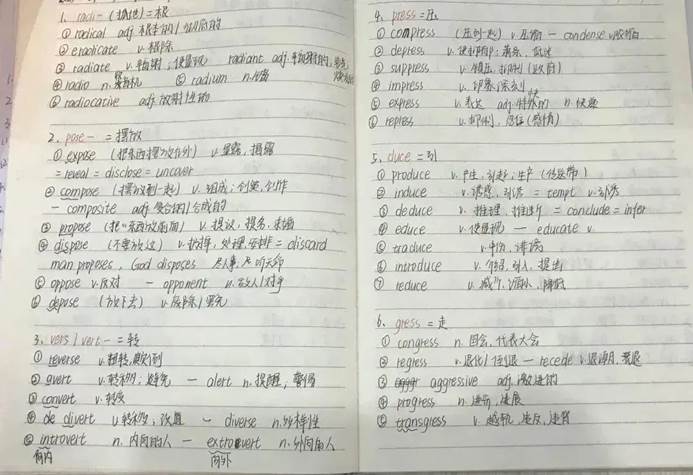 1. radi- (拉地) = 根
① radical adj. 根本的 / 彻底的
② eradicate v. 根除
③ radiate v. 辐射; 使显现 radiant adj.
④ radio n. 收音机 ⑤ radium n. 镭
⑥ radiocative adj. 放射性的
2. pose- = 摆放
① expose (把东西摆放在外) v. 显露, 揭露
= reveal = disclose = uncover
② compose (摆放到一起) v. 组成; 创建, 创作
— composite adj. 复合的 / 合成的
③ propose (把~东西放前面) v. 提议, 提名, 求婚
④ dispose (不要放过) v. 扔掉, 处理, 安排 = discard
man proposes, God disposes 尽人事, 听天命
⑤ oppose v. 反对 — opponent n. 敌人 / 对手
⑥ depose (放下去) v. 废除 / 罢免
3. vers / vert- = 转
① reverse v. 翻转, 颠倒
② avert v. 转移; 避免 — alert n. 提醒, 警惕
③ convert v. 转变
④ divert v. 转移, 改道 — diverse n. 多样性
⑤ introvert n. 内向的人 — extrovert n. 外向的人
向内 向外
4. press = 压
① compress (压到一起) v. 压缩 — condense v. 浓缩
② depress v. 使抑郁; 萧条
③ suppress v. 镇压, 抑制 (政府)
④ impress v. 印象深刻
⑤ express v. 表达 adj. 特快的 n. 快递
⑥ repress v. 抑制, 忍住 (感情)
5. duce = 引
① produce v. 产生, 引起; 生产
② induce v. 诱惑, 引诱 = tempt v. 引诱
③ deduce v. 推理, 推断 = conclude = infer
④ educe v. 使显现 — educate v.
⑤ traduce v. 中伤, 诽谤
⑥ introduce v. 介绍, 引入, 提出
⑦ reduce v. 减少, 缩小, 降低
6. gress = 走
① congress n. 国会, 代表大会
② regress v. 退化 / 倒退 — recede v.
③ aggressive adj. 激进的
④ progress n. 进步, 进展
⑤ transgress v. 越轨, 违反, 违背